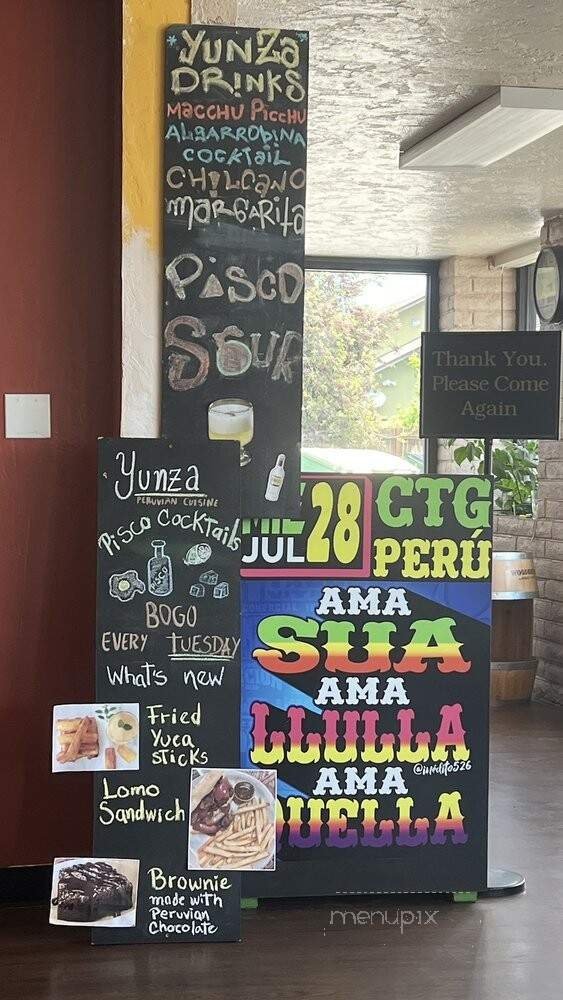 YUNZA
DRINKS
MACCHU PICCHU
ALGARROBINA
COCKTAIL
CHILCANO
MARGARITA
PISCO
SOUR
Thank You.
Please Come
Again
Yunza
PERUVIAN CUISINE
Pisco Cocktails
PISCO
BOGO
EVERY TUESDAY
What's new
Fried
Yuca
sticks
Lomo
Sandwich
Brownie
made with
Peruvian
Chocolate
JUL 28
CTG
PERÚ
AMA
SUA
AMA
LLULLA
AMA
QUELLA
menupix